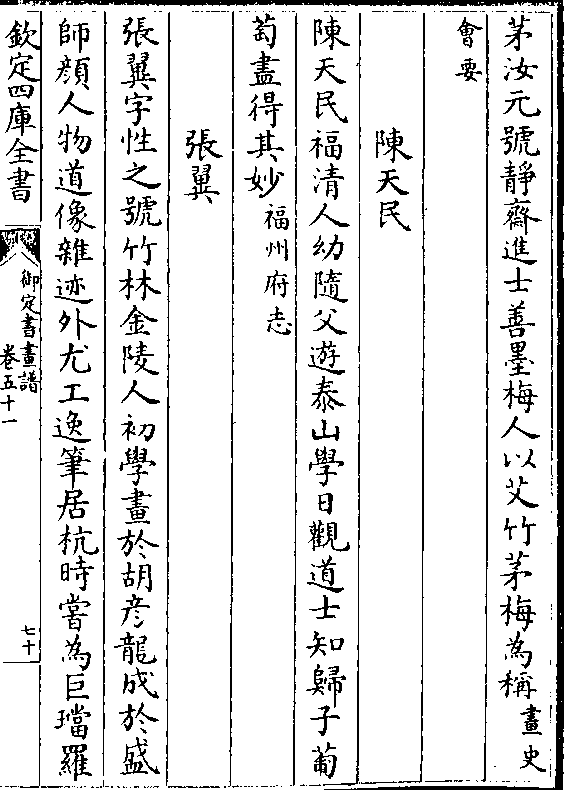 茅汝元號靜齋進士善墨梅人以艾竹茅梅為稱畫史
會要
陳天民
陳天民福清人幼隨父遊泰山學日觀道士知歸子葡
萄盡得其妙福州府志
張翼
張翼字性之號竹林金陵人初學畫於胡彥龍成於盛
師顔人物道像雜迹外尤工逸筆居杭時嘗為巨璫羅
欽定四庫全書
御定書畫譜
卷五十一
七十